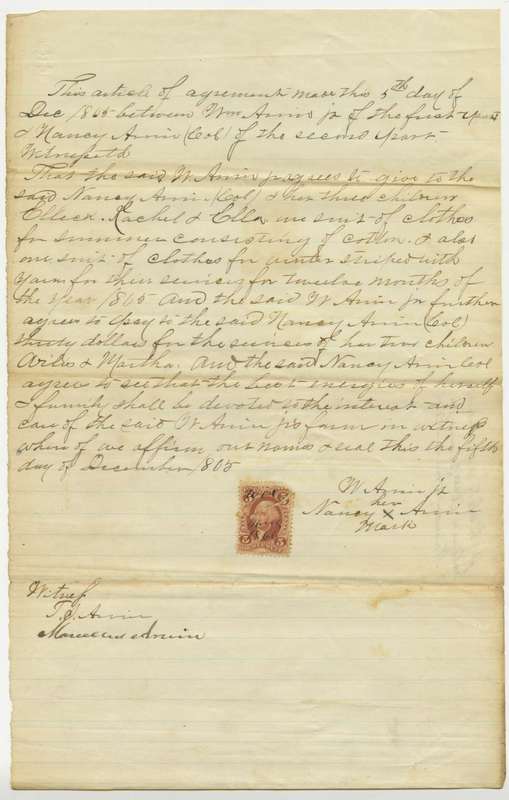 This article of agrement made this 5th day of
Dec 1865 between Wm Arvin jr of the first part
& Nancy Arvin (Col) of the second part
Witnesseth
That the said W Arvin jr agrees to give to the
said Nancy Arvin (Col) & her three children
Elleck. Rachel & Ella one suit of clothes
for summer consisting of cotton. & also
one suit of clothes for winter striped with
yarn for their services for twelve months of
the year 1865 And the said W Arvin jr further
agrees to pay to the said Nancy Arvin (Col)
thirty dollars for the services of her two children
& Martha. And the said Nancy Arvin Col
agree to see that the best energies of herself
& family shall be devoted to the interest and
care of the said W Arvin jrs farm in witness
where of we affirm our names & seal this the fifth
day of December 1865
W Arvin jr
her
Nancy X Arvin
Mark
3 3
Witness
T. J. Arvin
Arvin